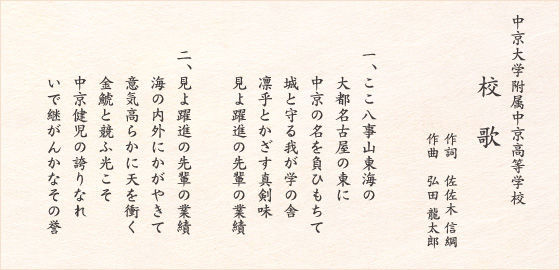 中京大学附属中京高等学校
校歌
作詞 佐佐木 信綱
作曲 弘田 龍太郎
一、ここ八事山東海の
大都名古屋の東に
中京の名を負ひもちて
城と守る我が学の舎
凛乎とかざす真剣味
見よ躍進の先輩の業績
二、見よ躍進の先輩の業績
海の内外にかがやきて
意気高らかに天を衝く
金鯱と競ふ光こそ
中京健児の誇りなれ
いで継がんかなその誉